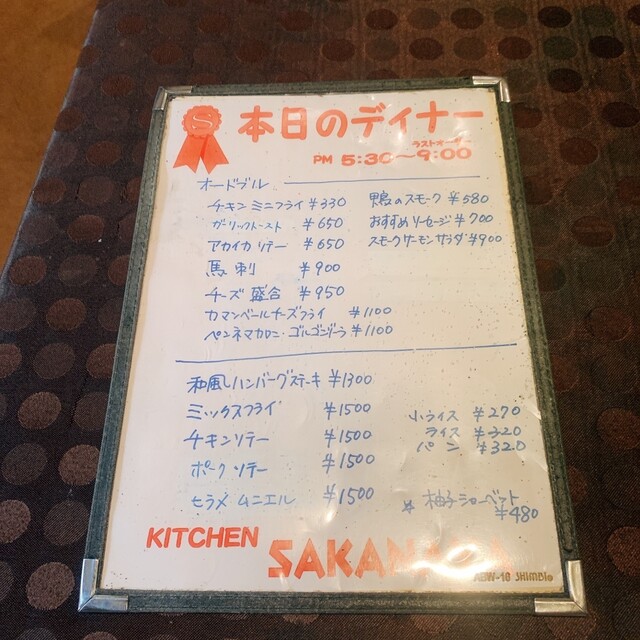 S
本日のディナー
ラストオーダー
PM 5:30～9:00
オードブル
チキンミニフライ ¥330
ガーリックトースト ¥650
アカイカソテー ¥650
馬刺 ¥900
チーズ盛合 ¥950
カマンベールチーズフライ ¥1100
ペンネマカロニ・ゴルゴンゾーラ ¥1100
鴨のスモーク ¥580
おすすめソーセージ ¥700
スモークサーモンサラダ ¥900
和風ハンバーグステーキ ¥1300
ミックスフライ ¥1500
チキンソテー ¥1500
ポークソテー ¥1500
ヒラメ ムニエル ¥1500
小ライス ¥270
ライス ¥320
パン ¥320
☆ 柚子シャーベット
¥480
KITCHEN
ABW-16 SHIMBI